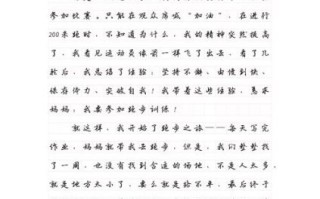 参加比赛。只能在观众席喊“加油”，在进行
200米跑时，不知道为什么，我的精神突然振高
了，我看见运动员像箭一样飞了出去，看了几
轮后，我总结了经验，坚持不懈、由慢到快、
保存体力、突破自我！我带着这些经验，恳求
妈妈：我要参加跑步训练！
就这样，我开始了跑步之旅——每天写完
作业，妈妈就带我去跑步，但是，我们整整找
了一周，也没有找到合适的场地，不是人太多，
就是地方太小了，要么就是路不平，最后终于